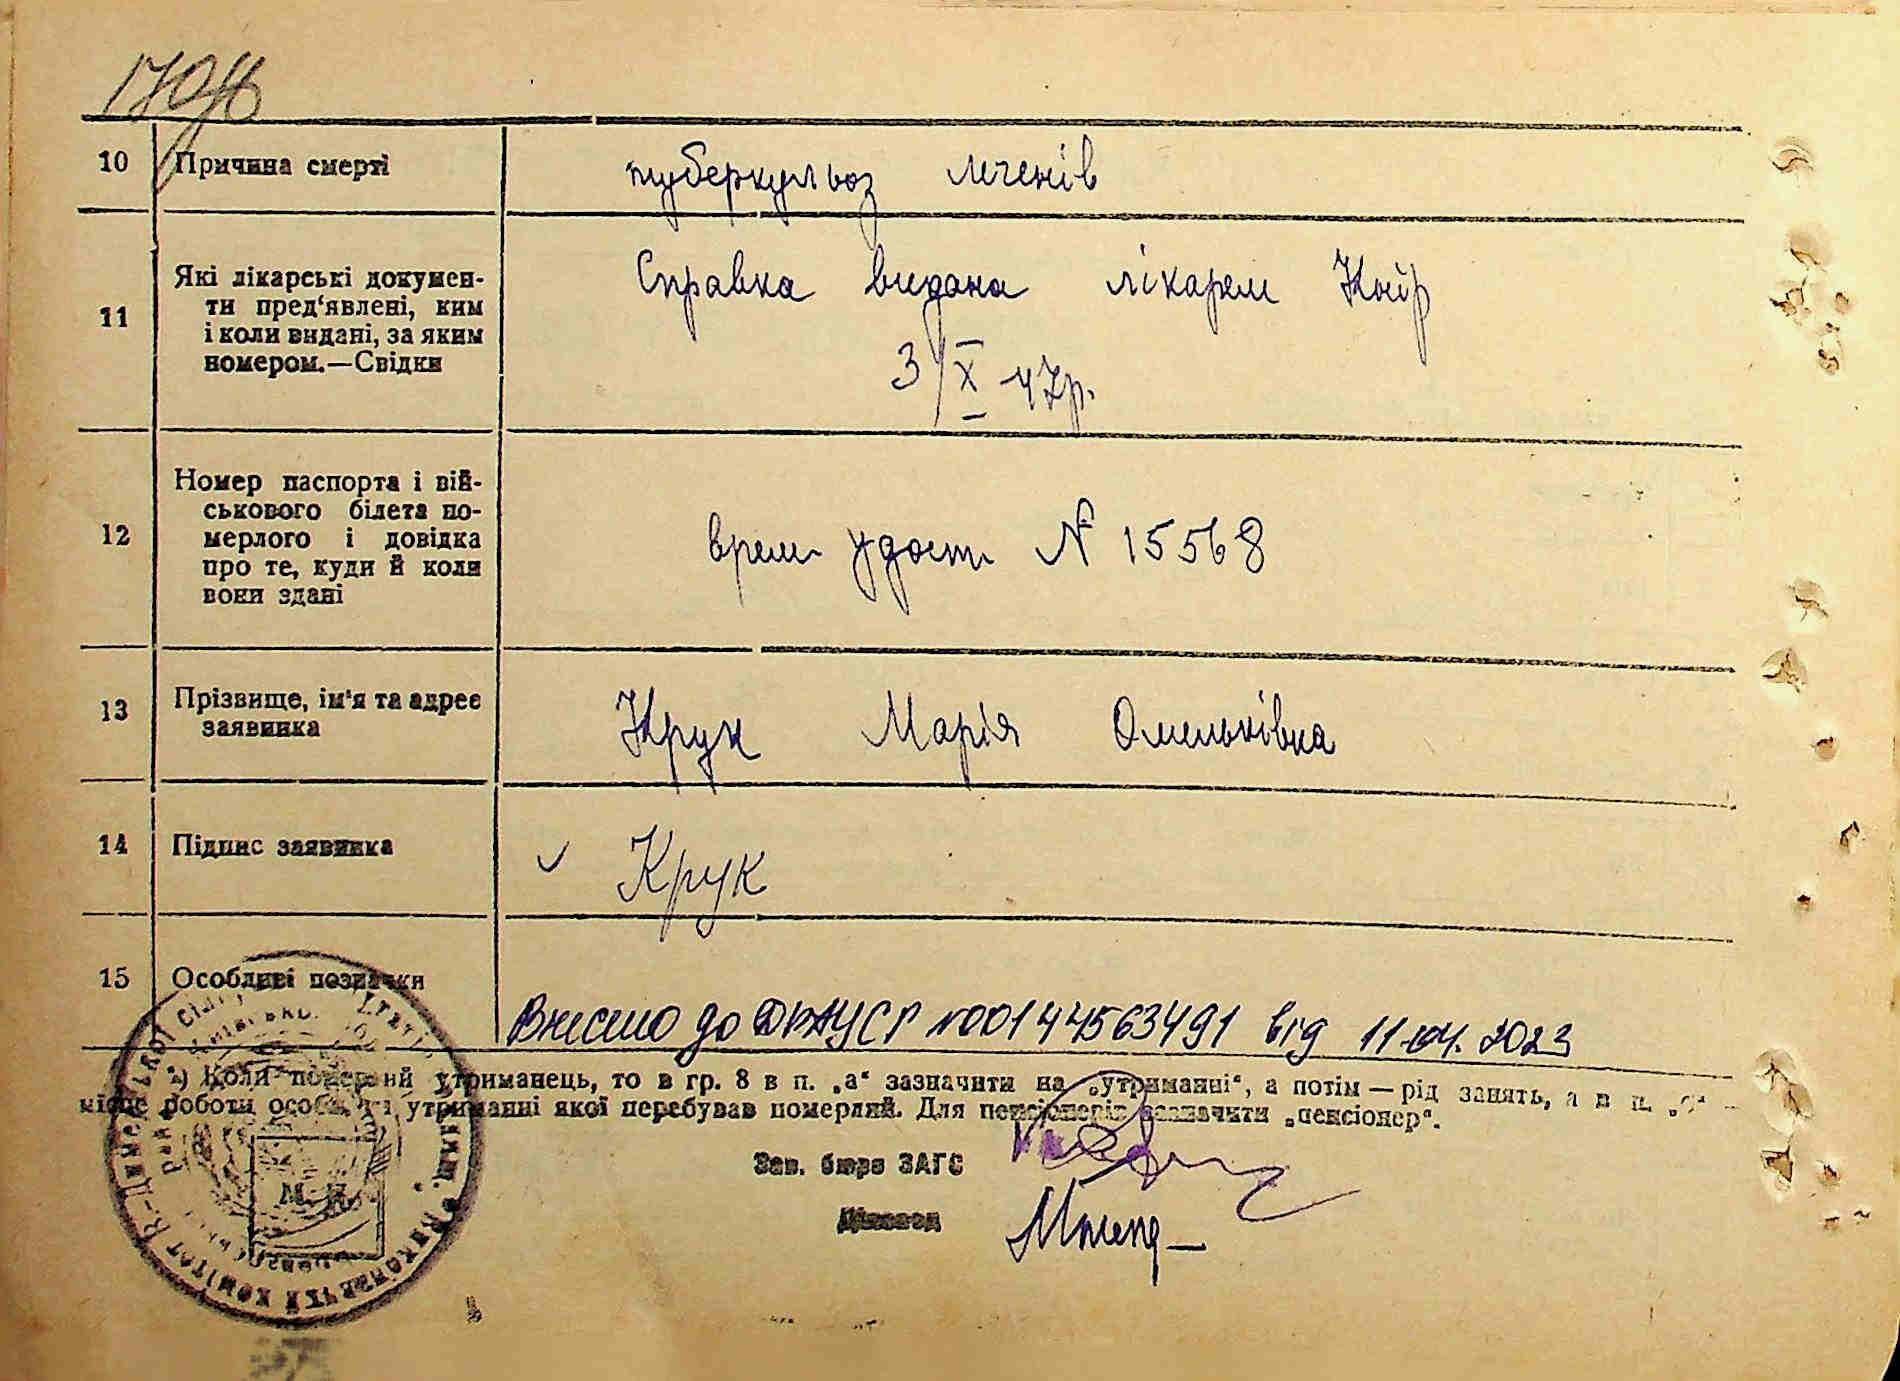 170
10 Причина смерті туберкульоз легенів
11 Які лікарські докумен-
ти пред'явлені, ким
і коли видані, за яким
номером.—Свідки
Справка видана лікарем
3/X-47р.
12 Номер паспорта і вій-
ськового білета по-
мерлого і довідка
про те, куди й коли
вони здані
врем удост № 15568
13 Прізвище, ім'я та адрес
заявника
Крук Марія Омельківна
14 Підпис заявника ✓ Крук
15 Особливі позначки
Внесено до ДРАЦСГ №00144563491 від 11.04.2023
*) Коли померлий утриманець, то в гр. 8 в п. „а“ зазначити на „утриманні“, а потім — рід занять, а в п.
місце роботи особи, на утриманні якої перебував померлий. Для пенсіонерів зазначити „пенсіонер“.
Зав. бюро ЗАГС
Діловод
М. П.